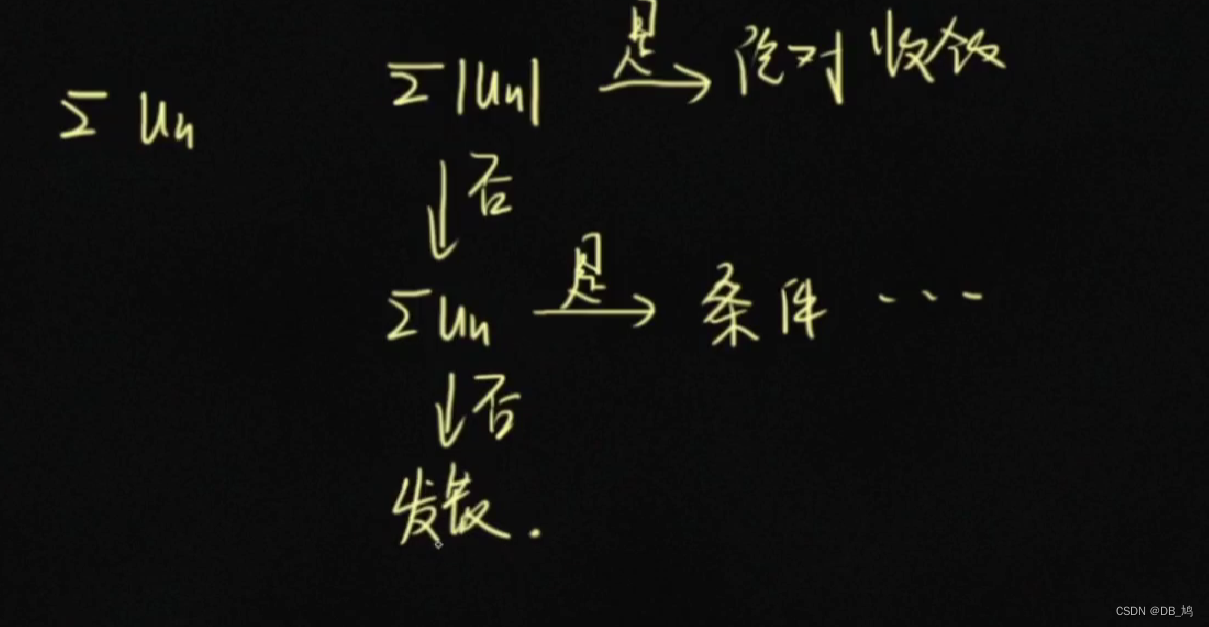 Σ Un
Σ|Un| 是→ 绝对收敛
↓否
ΣUn 是→ 条件 ...
↓否
发散.
CSDN @DB_鸠